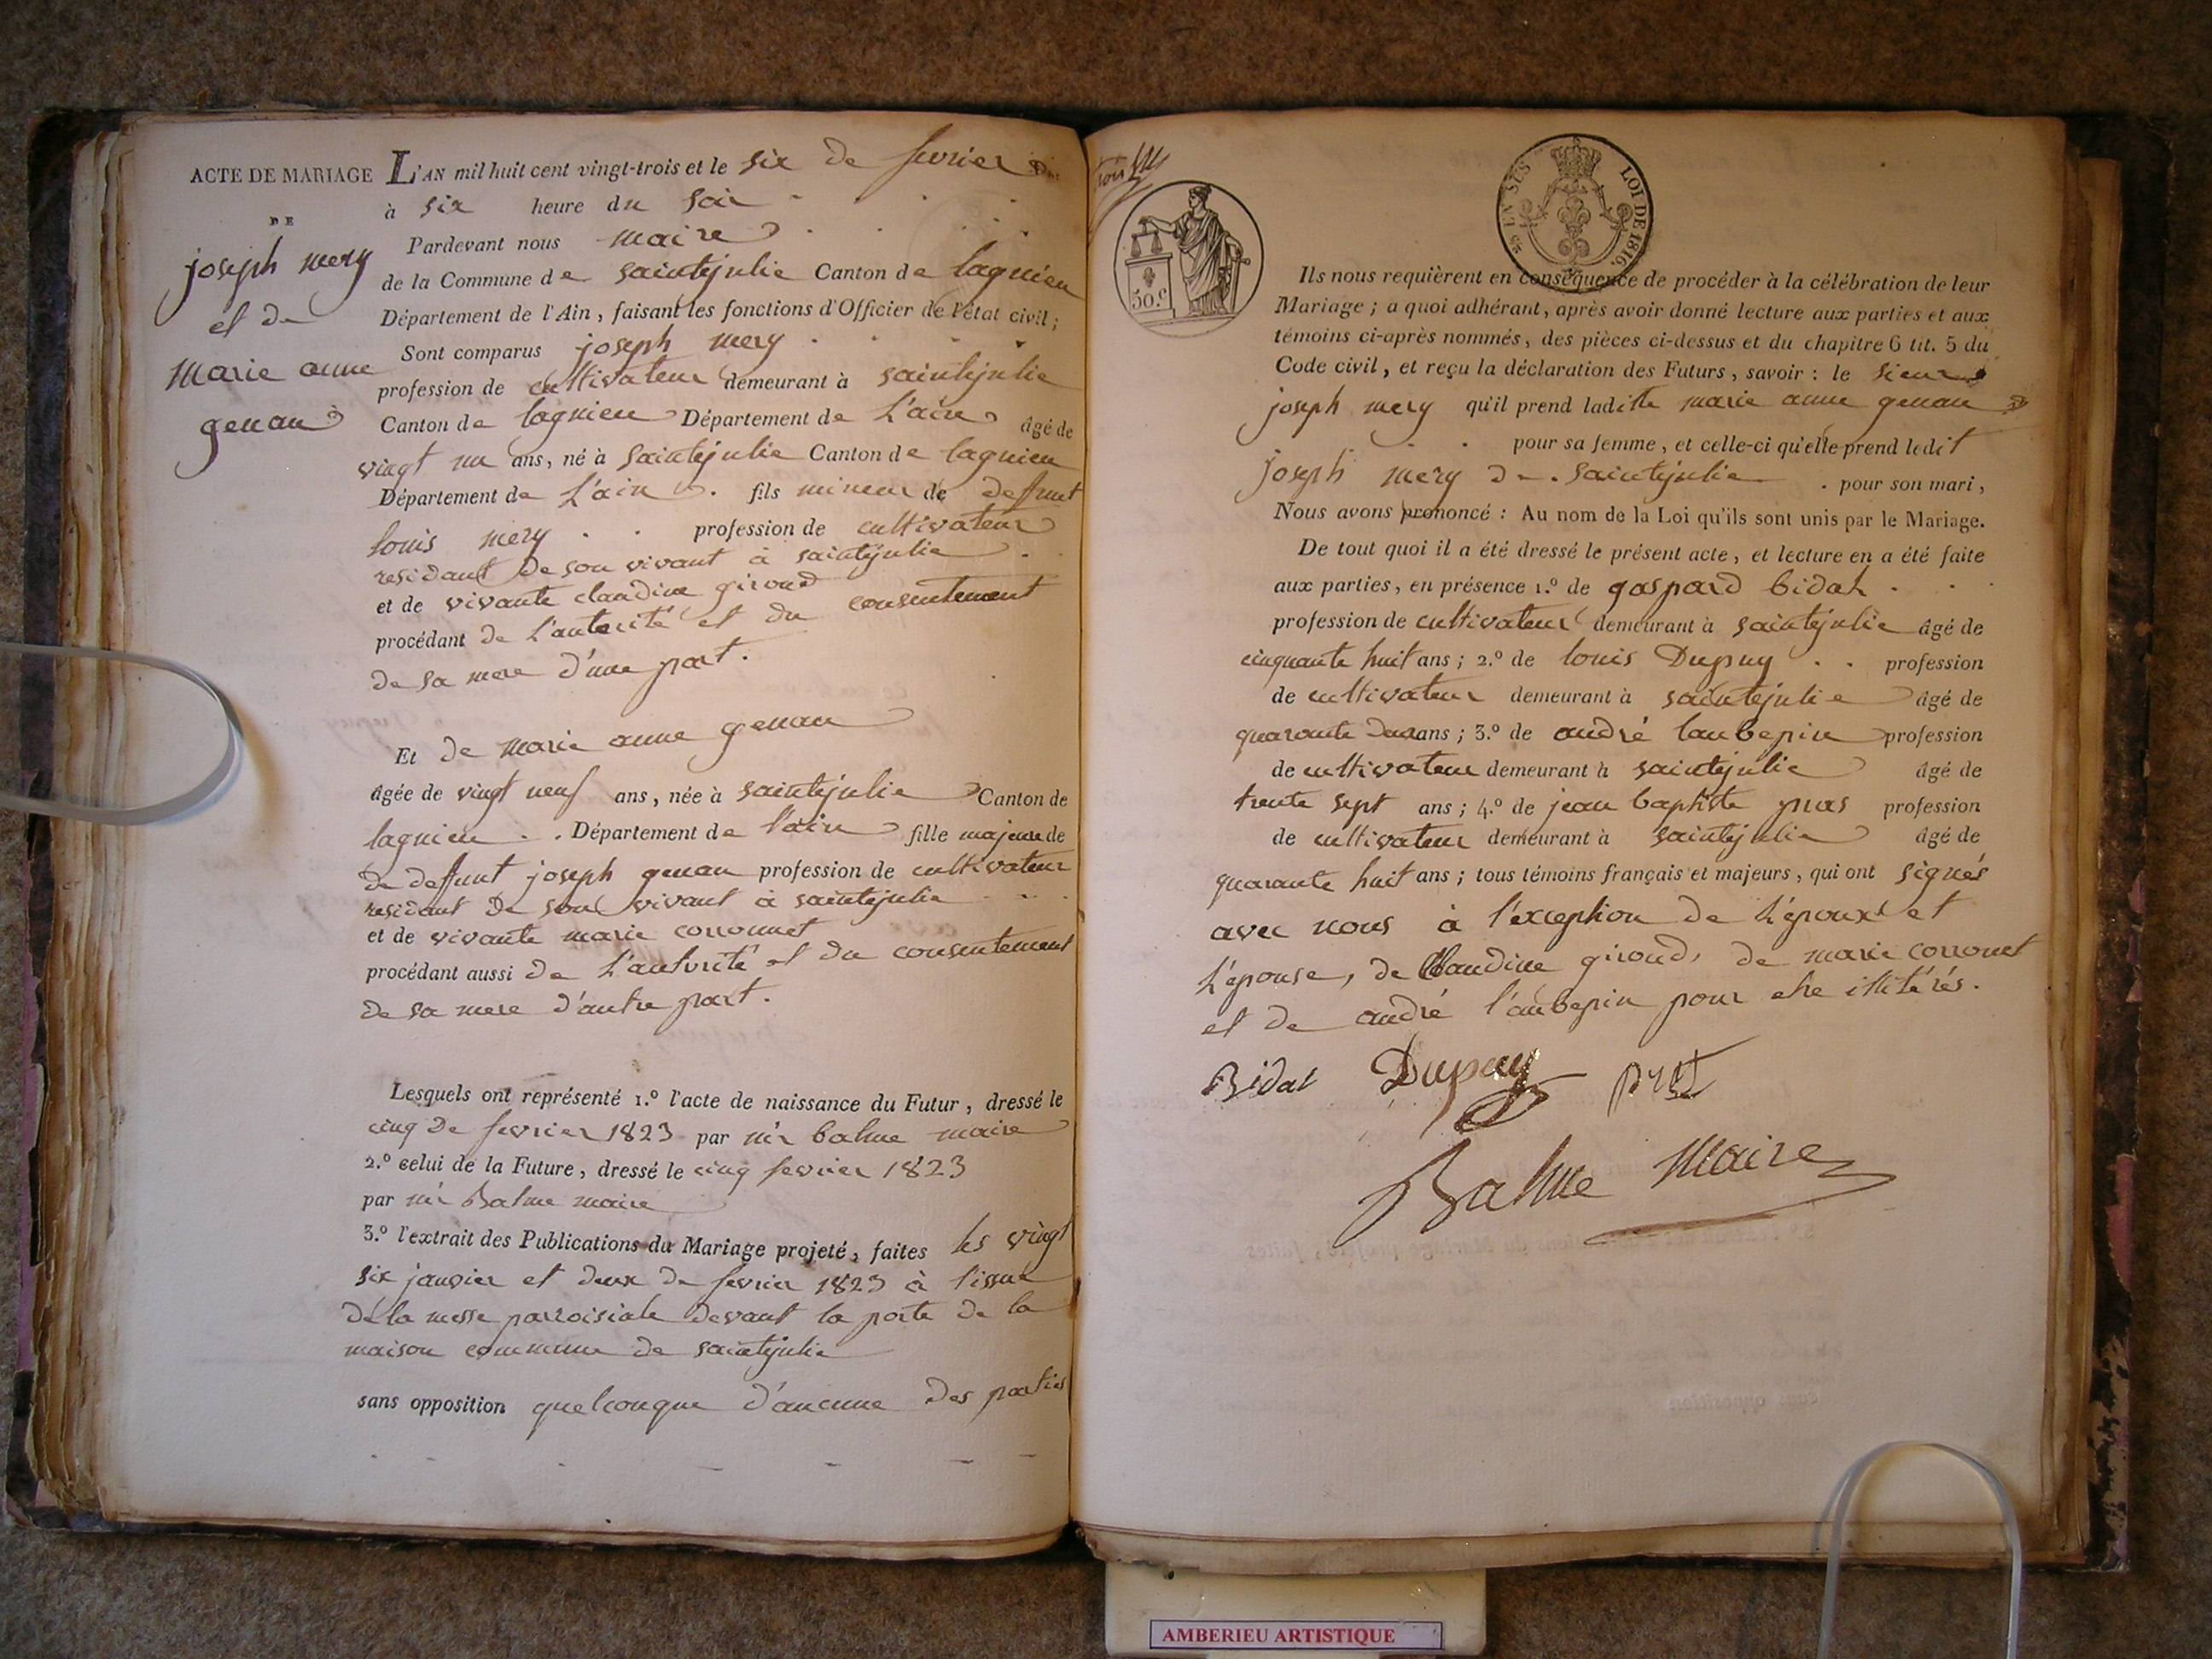 ACTE DE MARIAGE
DE
joseph mery
et de
marie anne
genau
L'AN mil huit cent vingt-trois et le six de fevrier
à six heure du soir
Pardevant nous maire
de la Commune de saintejulie Canton de lagnieu
Département de l'Ain, faisant les fonctions d'Officier de l'état civil;
Sont comparus joseph mery
profession de cultivateur demeurant à saintejulie
Canton de lagnieu Département de L'ain âgé de
vingt un ans, né à saintejulie Canton de lagnieu
Département de L'ain fils mineur de deffunt
louis mery profession de cultivateur
residant de son vivant à saintejulie
et de vivante claudine giroud
procédant de L'autorité et du consentement
de sa mere d'une part.
Et de marie anne genau
âgée de vingt neuf ans, née à saintejulie Canton de
lagnieu Département de l'ain fille majeure de
de deffunt joseph genau profession de cultivateur
residant de son vivant à saintejulie
et de vivante marie corronnet
procédant aussi de L'autorité et du consentement
de sa mere d'autre part.
Lesquels ont représenté 1.º l'acte de naissance du Futur, dressé le
cinq de fevrier 1823 par mr balme maire
2.º celui de la Future, dressé le cinq fevrier 1823
par mr Balme maire
3.º l'extrait des Publications du Mariage projeté, faites les vingt
six janvier et deux de fevrier 1823 à l'issue
de la messe parroisiale devant la porte de la
maison commune de saintejulie
sans opposition quelconque d'aucune des parties
50.c
EN SUS LOI DE 1816.
Ils nous requièrent en conséquence de procéder à la célébration de leur
Mariage; a quoi adhérant, après avoir donné lecture aux parties et aux
témoins ci-après nommés, des pièces ci-dessus et du chapitre 6 tit. 5 du
Code civil, et reçu la déclaration des Futurs, savoir: le sieur
joseph mery qu'il prend ladite marie anne genau
pour sa femme, et celle-ci qu'elle prend ledit
joseph mery de saintejulie pour son mari,
Nous avons prononcé: Au nom de la Loi qu'ils sont unis par le Mariage.
De tout quoi il a été dressé le présent acte, et lecture en a été faite
aux parties, en présence 1.º de gaspard bidat
profession de cultivateur demeurant à saintejulie âgé de
cinquante huit ans; 2.º de louis Dupuy profession
de cultivateur demeurant à saintejulie âgé de
quarante deux ans; 3.º de andré laubepin profession
de cultivateur demeurant à saintejulie âgé de
trente sept ans; 4.º de jean baptiste pras profession
de cultivateur demeurant à saintejulie âgé de
quarante huit ans; tous témoins français et majeurs, qui ont signés
avec nous à l'exception de L'époux et
L'épouse, de Claudine giroud, de marie corronet
et de andré l'aubepin pour etre illitérés.
Bidat Dupuy
Balme Maire
AMBERIEU ARTISTIQUE